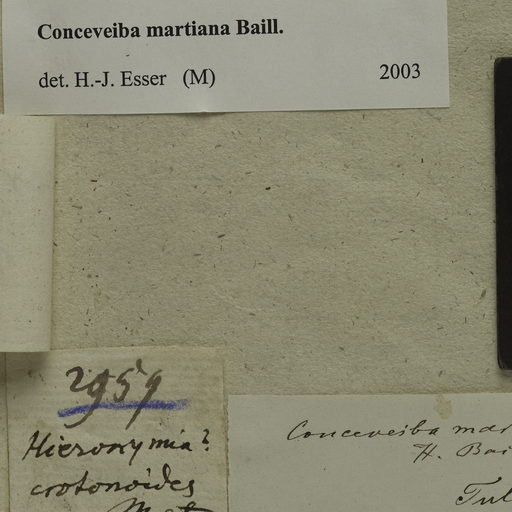 Conceveiba martiana Baill.
det. H.-J. Esser (M) 2003
2959
Hieronymia?
crotonoides
Conceveiba mar
H. Bai
Tul